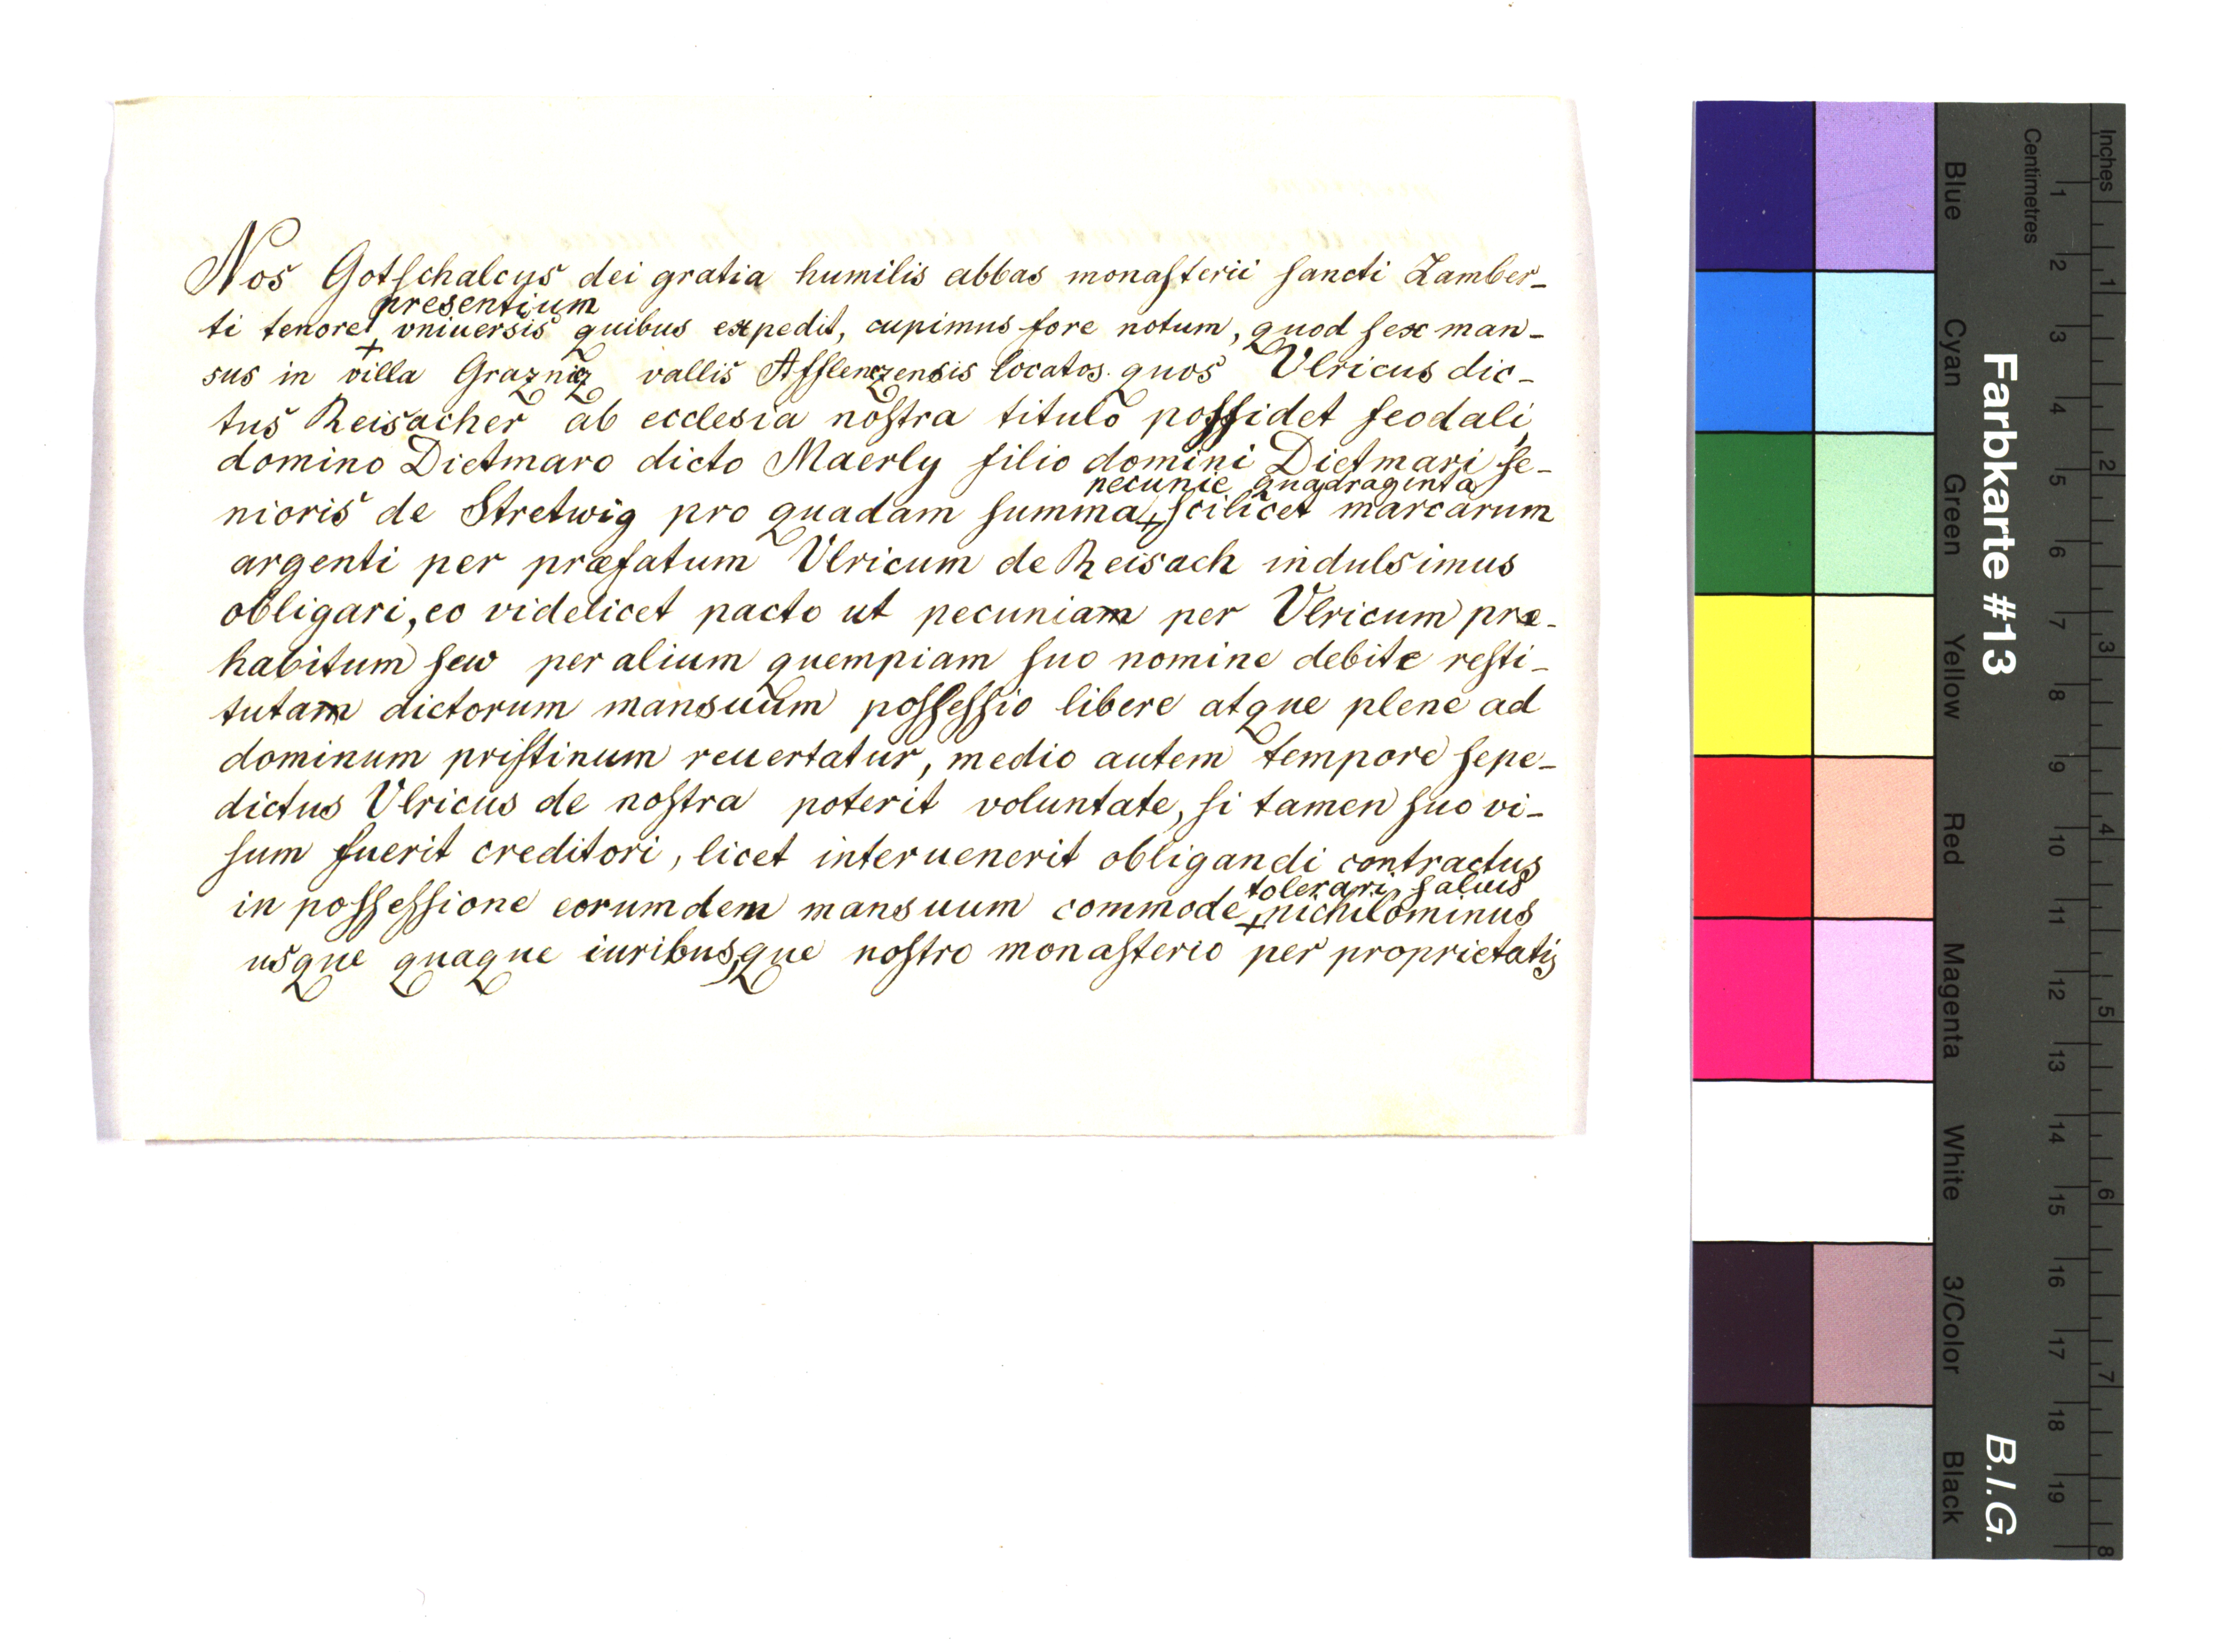 Nos Gotſchalcus dei gratia humilis abbas monaſterii ſancti Lamber-
presentium
ti tenore + vniuersis quibus expedit, cupimus fore notum, quod ſex man-
sus in villa Grazniz vallis Afflenzensis locatos quos Vlricus dic-
tus Reisacher ab ecclesia noſtra titulo poſſidet feodali,
domino Dietmaro dicto Maerly filio domini Dietmari ſe-
pecunie quadraginta
nioris de Stretwig pro quadam ſumma + ſcilicet marcarum
argenti per præfatum Vlricum de Reisach indulsimus
obligari, eo videlicet pacto ut pecuniam per Vlricum præ-
habitum ſew per alium quempiam ſuo nomine debite reſti-
tutam dictorum mansuum poſſeſſio libere atque plene ad
dominum priſtinum reuertatur, medio autem tempore ſepe-
dictus Vlricus de noſtra poterit voluntate, ſi tamen ſuo vi-
ſum fuerit creditori, licet interuenerit obligandi contractus
tolerari, ſaluis
in poſſeſſione eorumdem mansuum commode + nichilominus
usque quaque iuribusque noſtro monaſterio per proprietatis
Farbkarte #13
B.I.G.
Blue
Cyan
Green
Yellow
Red
Magenta
White
3/Color
Black
Centimetres
1 2 3 4 5 6 7 8 9 10 11 12 13 14 15 16 17 18 19
Inches
1 2 3 4 5 6 7 8